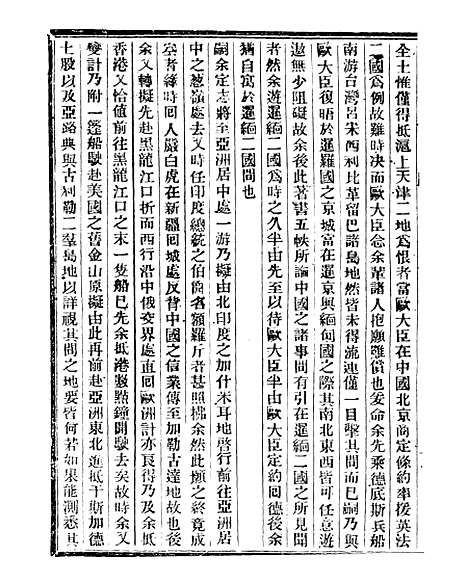 全土惟僅得抵滬上天津二地爲恨者當歐大臣在中國北京商定條約率援英法
二國爲例故雖時决而歐大臣念余輩諸人抱願難償也爰命余先乘德底斯兵船
南游台灣呂宋西利比革留巴諸島地然皆未得流連僅一目擊其間而已嗣乃與
歐大臣復晤於暹羅國之京城當在暹京與緬甸國之際其南北東西皆可任意遊
遨無少阻礙故余後此著書五帙所論中國之諸事間有引在暹緬二國之所見聞
者然余遊暹緬二國爲時之久半由先至以待歐大臣半由歐大臣定約回德後余
猶自寓於暹緬二國間也
嗣余定志將至亞洲居中處一游乃擬由北印度之加什米耳地啓行前往亞洲居
中之葱嶺處去又時任印度總統之伯爵名額羅斤者甚照拂余然此願之終竟成
空者緣時回人嚴白虎在新疆回城處反背中國之信業傳至加勒古達地故也後
余又轉擬先赴黑龍江口折而西行沿中俄交界處直回歐洲計亦良得乃及余抵
香港又恰値前往黑龍江口之末一隻船已先余抵港數點鐘開駛去矣故時余又
變計乃附一篷船駛赴美國之舊金山原擬由此再前赴亞洲東北進抵干斯加德
土股以及亞路典與古利勒二羣島地以詳視其間之地要皆何若如果能測悉其